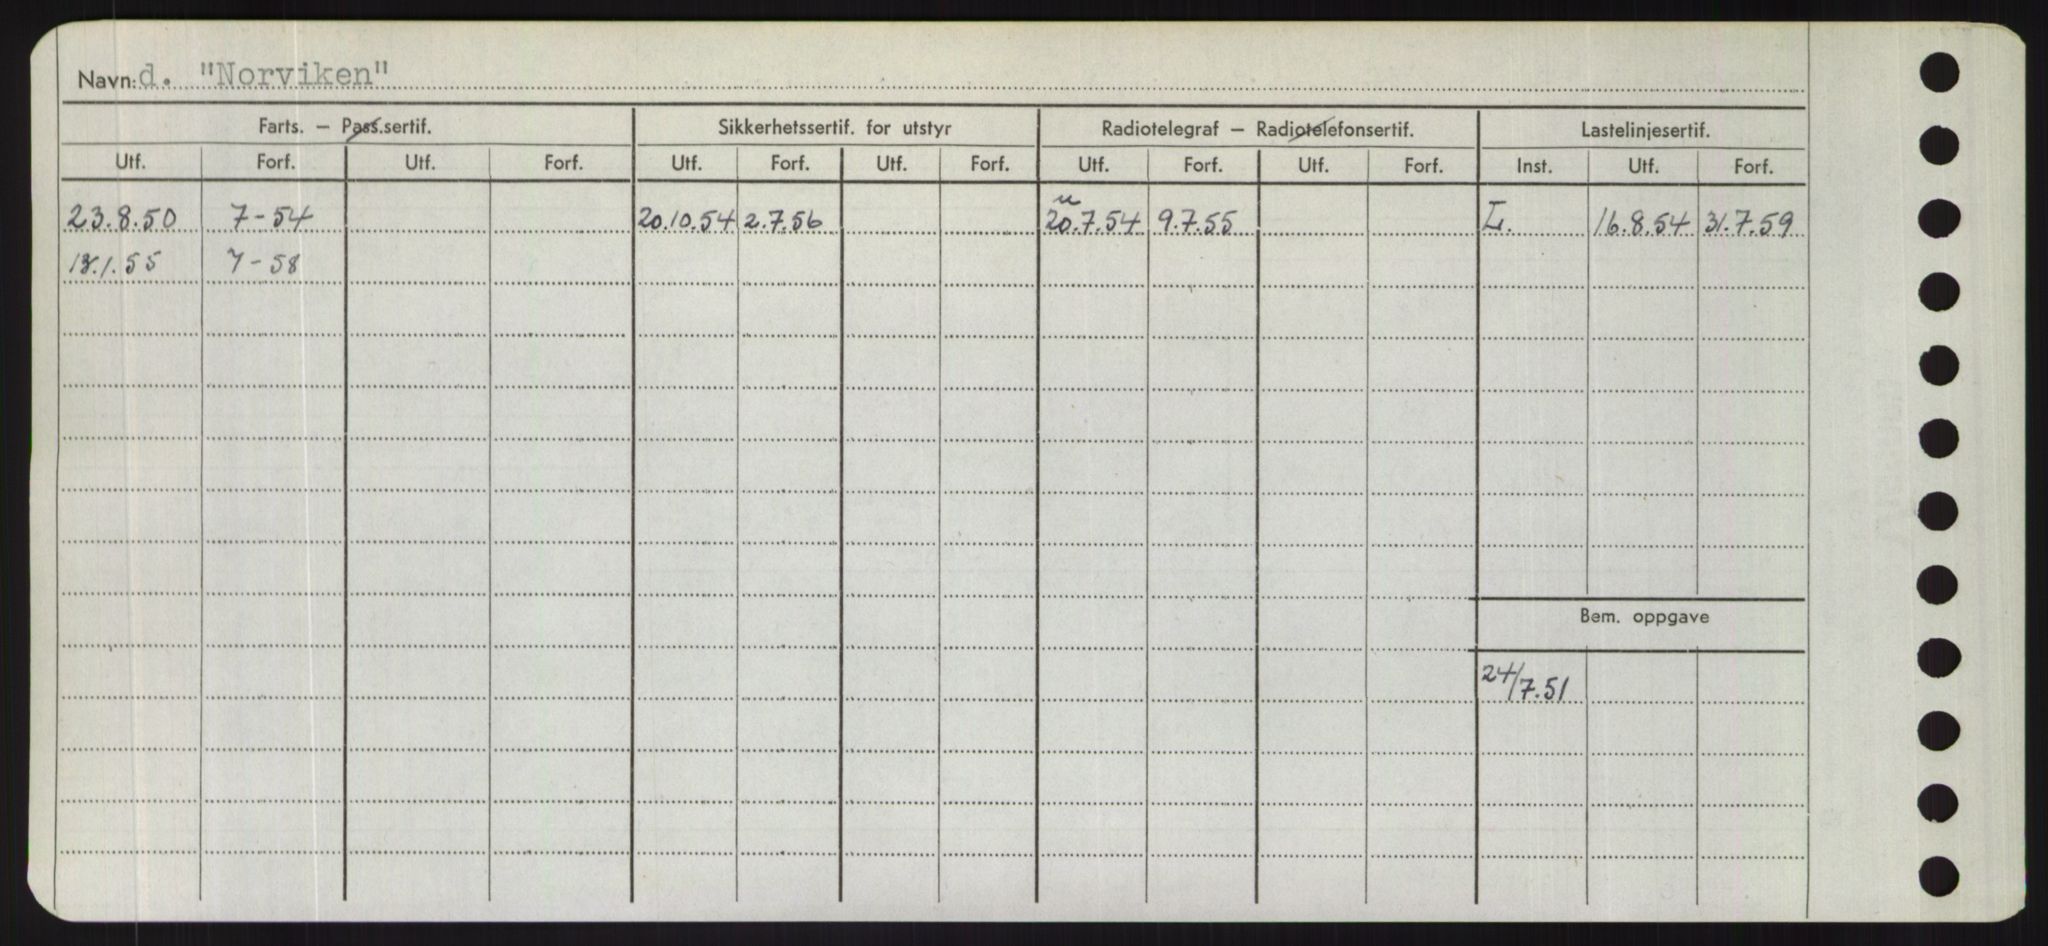 Navn: d. "Norviken"
Farts. – Pass.sertif. Sikkerhetssertif. for utstyr Radiotelegraf – Radiotelefonsertif. Lastelinjesertif.
Utf. Forf. Utf. Forf. Utf. Forf. Utf. Forf. Utf. Forf. Utf. Forf. Inst. Utf. Forf.
u
23.8.50 7-54 20.10.54 2.7.56 20.7.54 9.7.55 L. 16.8.54 31.7.59
7-58
Bem. oppgave
24/7.51